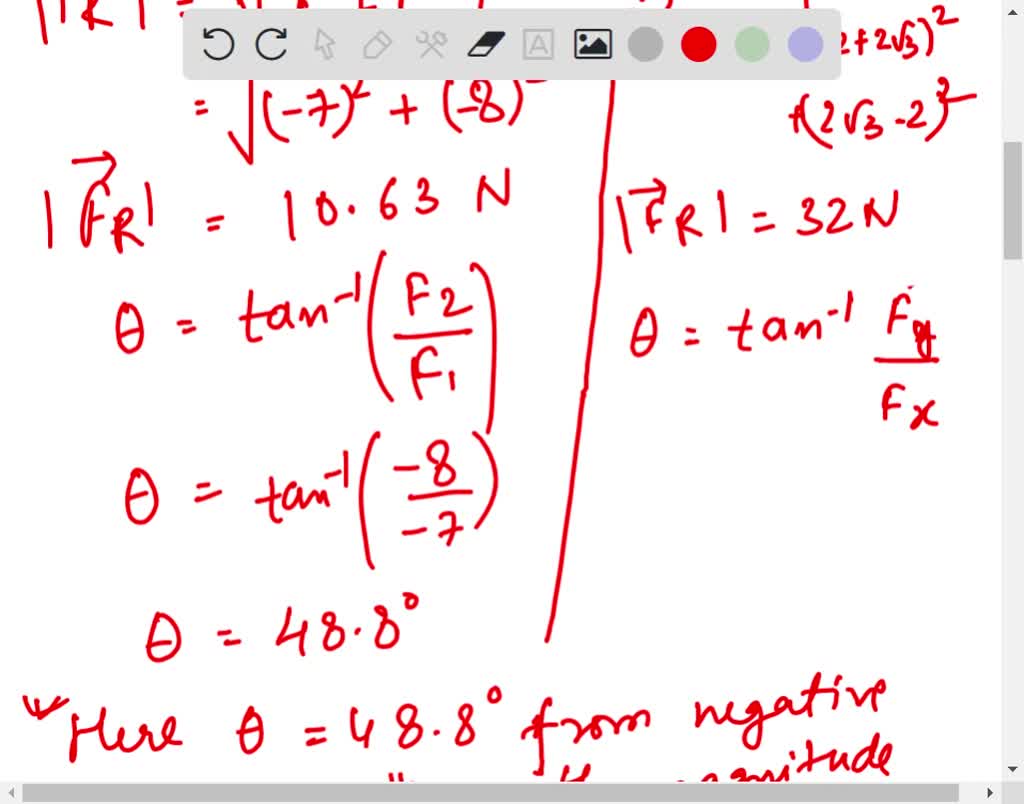 = √(-7)² + (-8)²
|F⃗R| = 10.63 N
θ = tan⁻¹(F2/F1)
θ = tan⁻¹(-8/-7)
θ = 48.8°
2+2√3)²
+(2√3-2)²
|F⃗R| = 32N
θ = tan⁻¹ Fy/Fx
Here θ = 48.8° from negative
magnitude